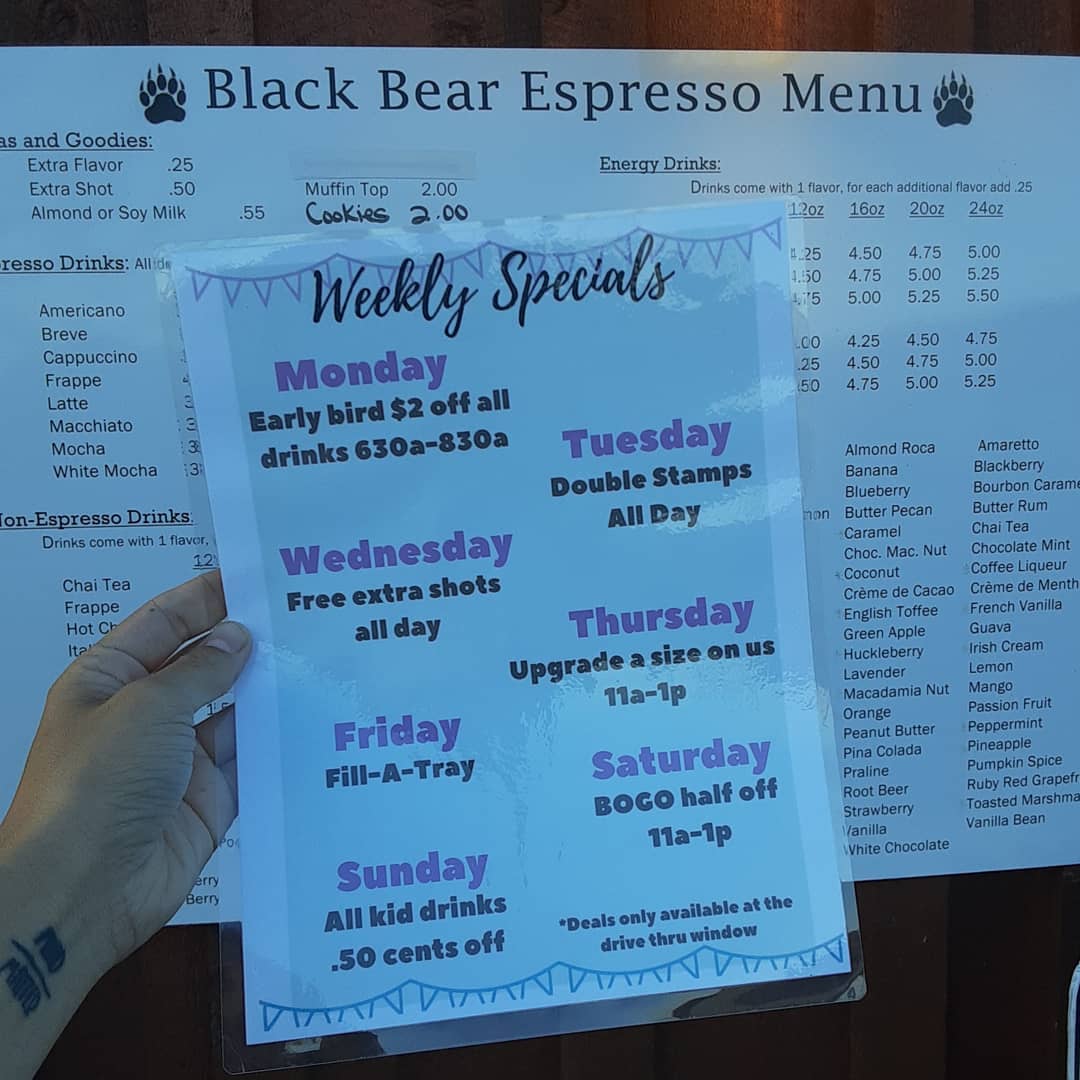 Black Bear Espresso Menu
and Goodies:
Extra Flavor .25
Extra Shot .50
Almond or Soy Milk .55
Muffin Top 2.00
Cookies 2.00
Energy Drinks:
Drinks come with 1 flavor, for each additional flavor add .25
12oz 16oz 20oz 24oz
.25 4.50 4.75 5.00
.50 4.75 5.00 5.25
.75 5.00 5.25 5.50
.00 4.25 4.50 4.75
.25 4.50 4.75 5.00
.50 4.75 5.00 5.25
Drinks:
Americano
Breve
Cappuccino
Frappe
Latte
Macchiato
Mocha
White Mocha
Non-Espresso Drinks:
Drinks come with 1 flavor,
Chai Tea
Frappe
Weekly Specials
Monday
Early bird $2 off all
drinks 630a-830a
Tuesday
Double Stamps
All Day
Wednesday
Free extra shots
all day
Thursday
Upgrade a size on us
11a-1p
Friday
Fill-A-Tray
Saturday
BOGO half off
11a-1p
Sunday
All kid drinks
.50 cents off
*Deals only available at the
drive thru window
Almond Roca
Banana
Blueberry
Butter Pecan
Caramel
Choc. Mac. Nut
Coconut
Crème de Cacao
English Toffee
Green Apple
Huckleberry
Lavender
Macadamia Nut
Orange
Peanut Butter
Pina Colada
Praline
Root Beer
Strawberry
Vanilla
White Chocolate
Amaretto
Blackberry
Bourbon
Butter Rum
Chai Tea
Chocolate Mint
Coffee Liqueur
Crème de Menth
French Vanilla
Guava
Irish Cream
Lemon
Mango
Passion Fruit
Peppermint
Pineapple
Pumpkin Spice
Ruby Red
Toasted
Vanilla Bean